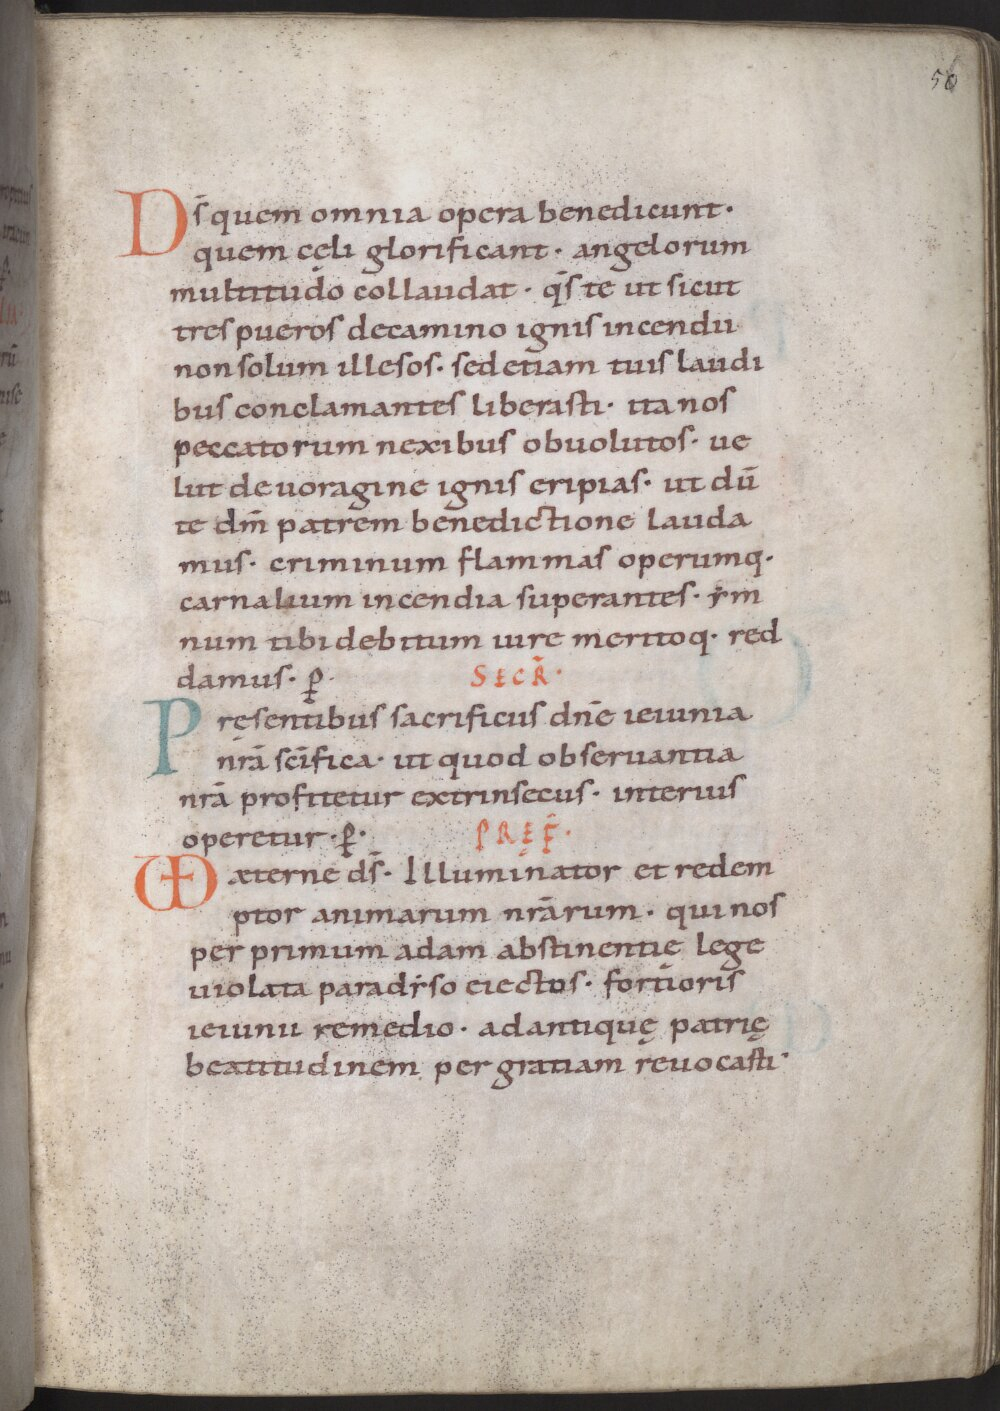 56
Ds̄ quem omnia opera benedicunt·
quem cęli glorificant· angelorum
multitudo collaudat· qs̄ te ut sicut
tres pueros decamino ignis incendii
non solum illesos· sed etiam tuis laudi
bus conclamantes liberasti· ita nos
peccatorum nexibus obuolutos· ue
lut de uoragine ignis eripias· ut dū
te dm̄ patrem benedictione lauda
mus· criminum flammas operumq·
carnalium incendia superantes· ẏm
num tibi debitum iure meritoq· red
damus· p̲
SECR̄·
Presentibus sacrificiis dn̄e ieiunia
nr̄a sc̄ifica· ut quod obseruantia
nr̄a profitetur extrinsecus· interius
operetur· p̲·
PRĘF̄·
UD æterne ds̄· Illuminator et redem
ptor animarum nr̄arum· qui nos
per primum adam abstinentię lege
uiolata paradẏso eiectos· fortioris
ieiunii remedio· ad antiquę patrię
beatitudinem per gratiam reuocasti·